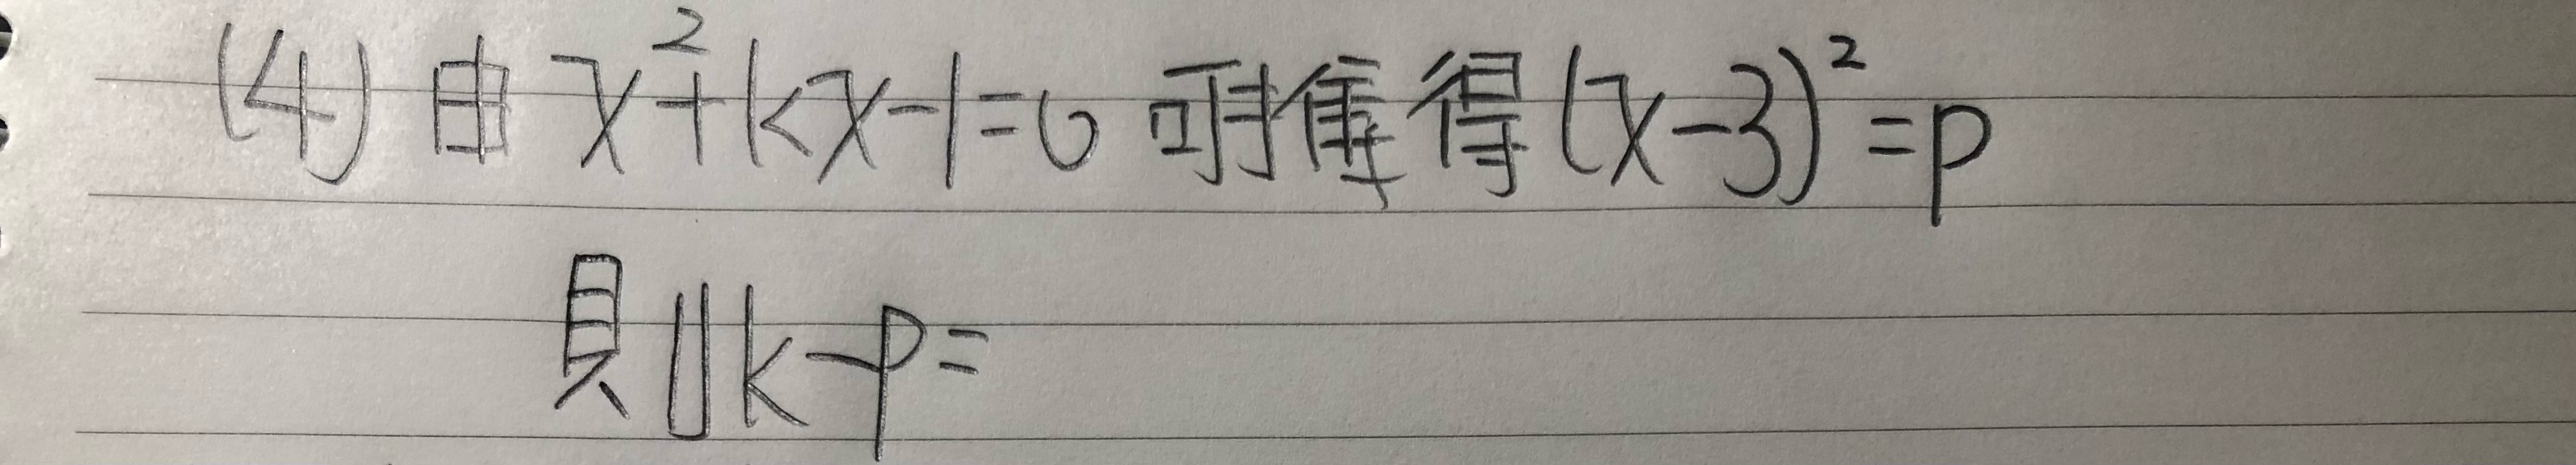 (4) 由 x²+kx-1=0 可推得(x-3)²=p
則k-p=